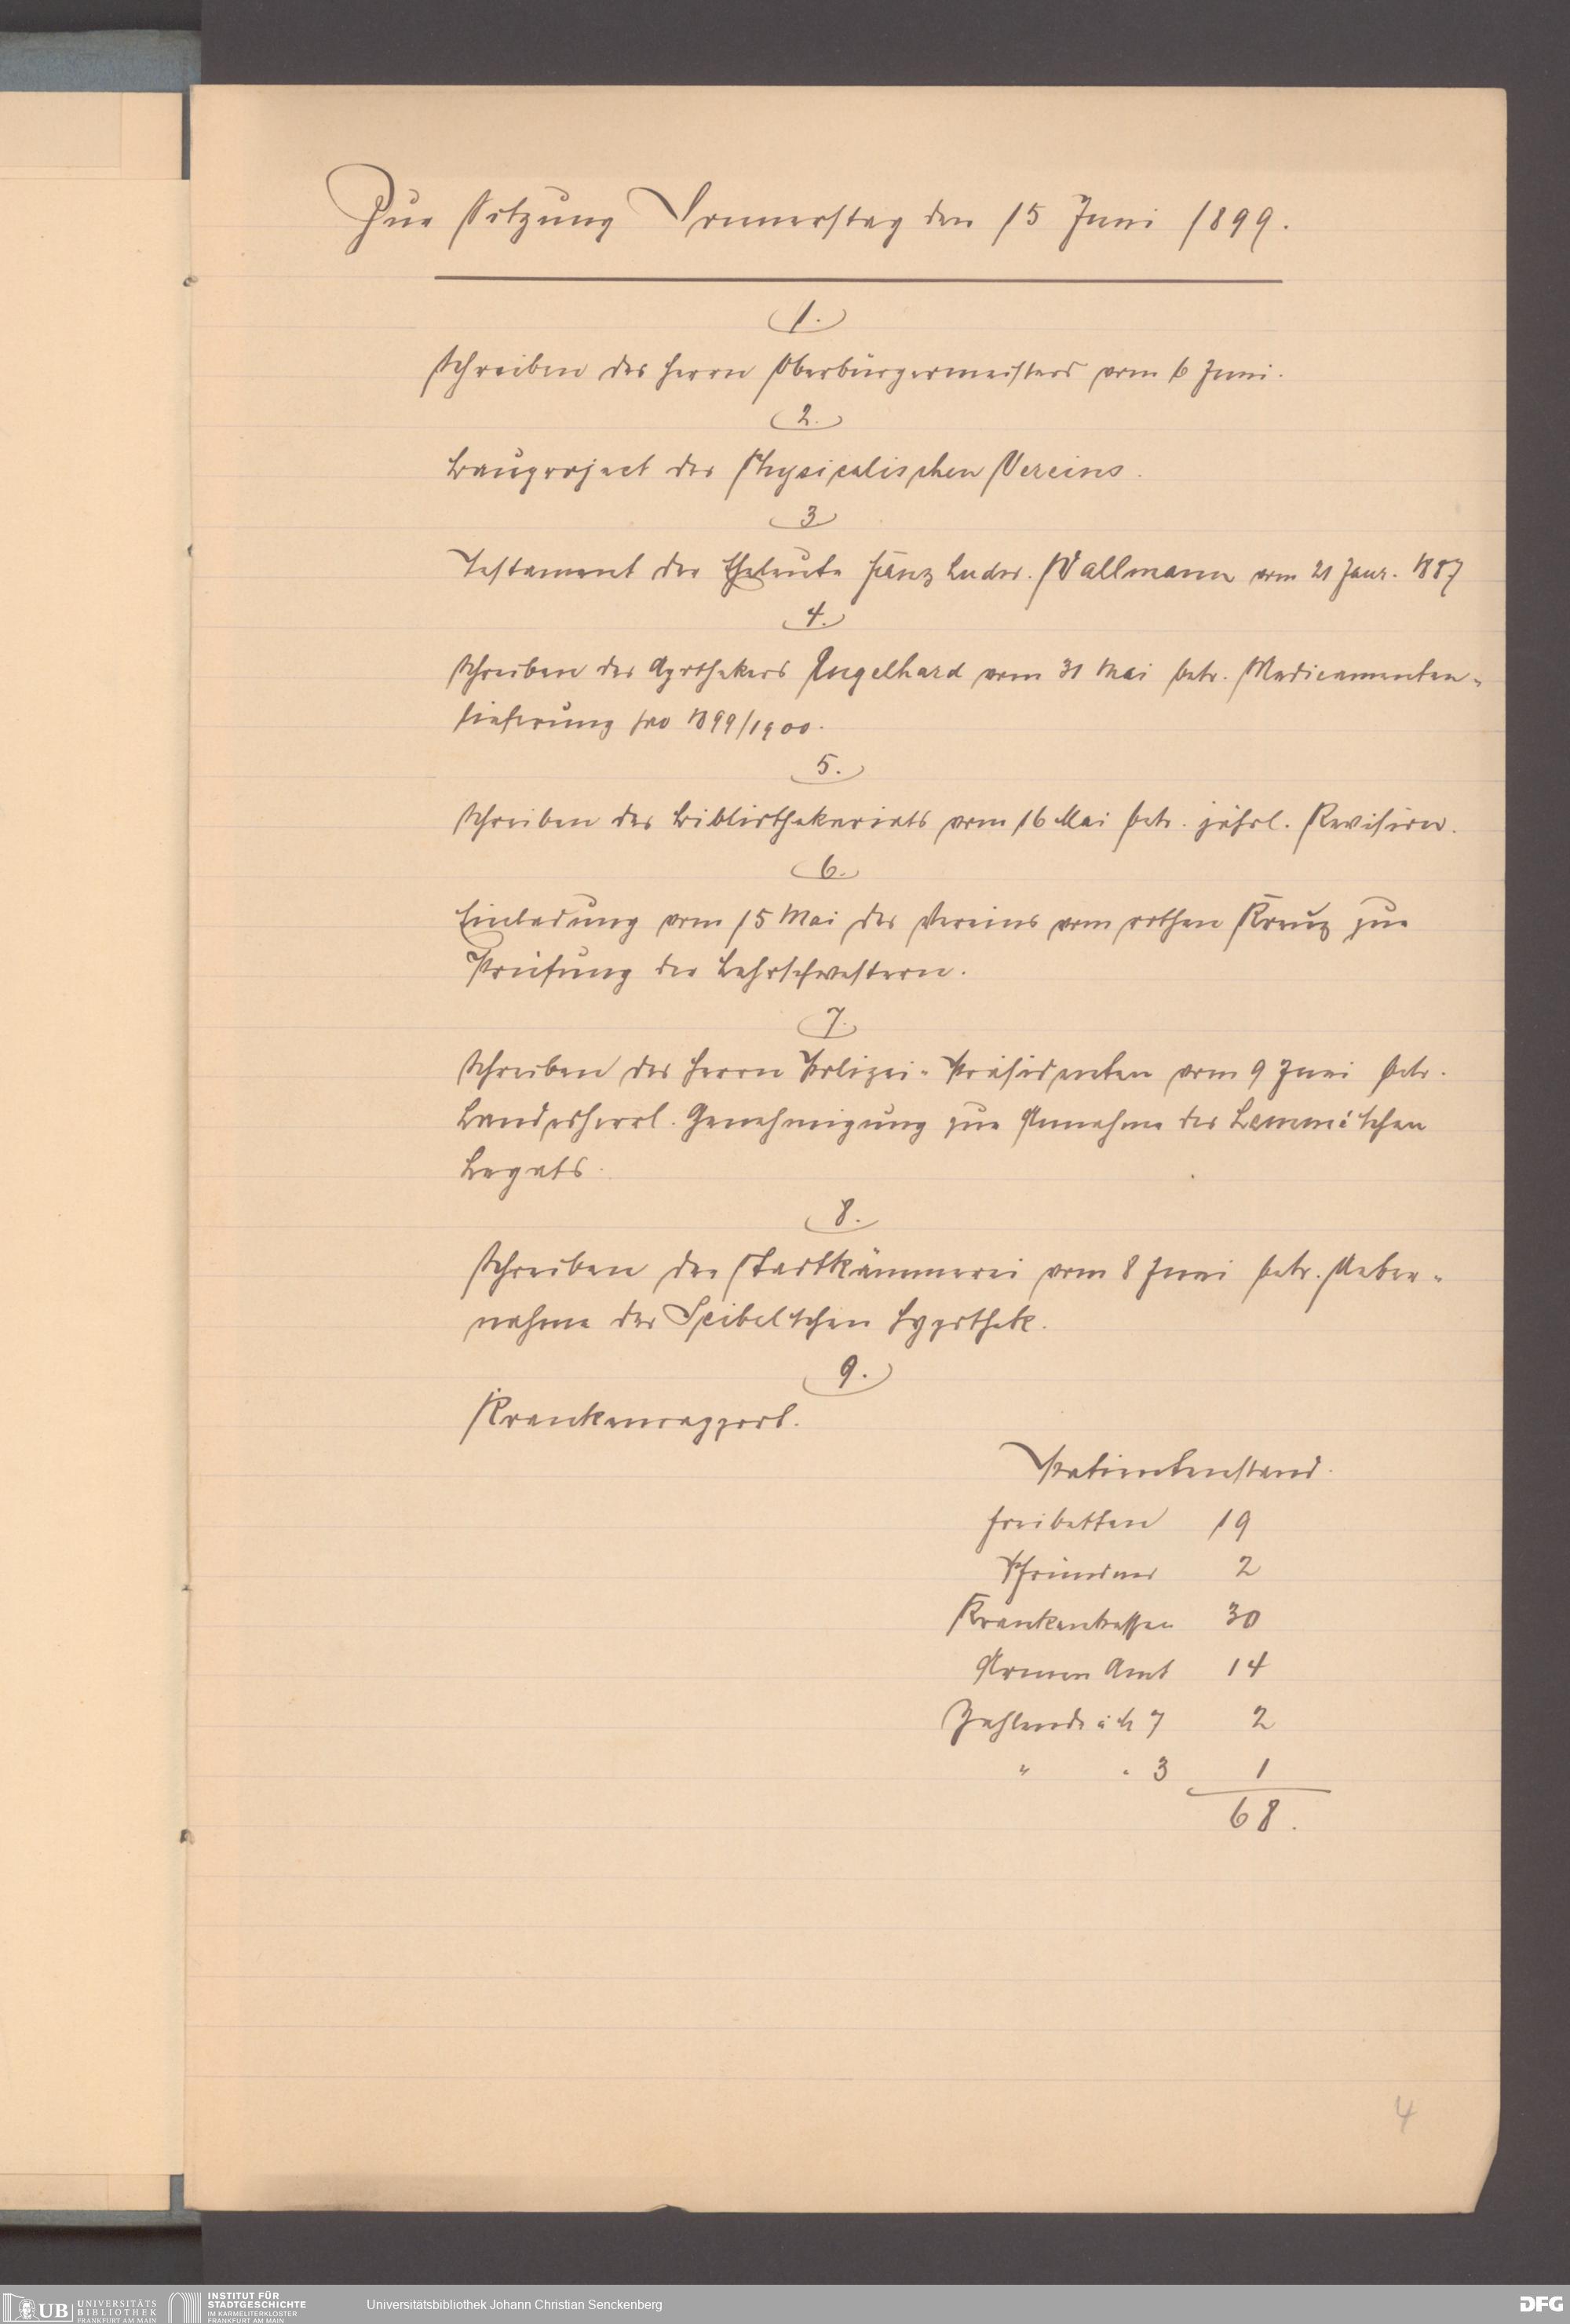 Zur Sitzung Donnerstag den 15 Juni 1899.
1.
Schreiben des Herrn Oberbürgermeisters vom 6 Juni.
2.
Bauproject des Physicalischen Vereins.
3
Testament der Eheleute Franz Ludw. Wallmann vom 21 Janr. 1887
4.
Schreiben des Apothekers Engelhard vom 31 Mai betr. Medicamenten-
lieferung pro 1899/1900.
5.
Schreiben des Bibliothekariats vom 16 Mai betr. jährl. Revision.
6.
Einladung vom 15 Mai des Vereins vom rothen Kreuz zur
Prüfung der Lehrschwestern.
7.
Schreiben des Herrn Polizei-Präsidenten vom 9 Juni betr.
Landesherrl. Genehmigung zur Annahme des Lemmé'schen
Legats.
8.
Schreiben der Stadtkämmerei vom 8 Juni betr. Ueber-
nahme der Seibel'schen Hypothek.
9.
Krankenrapport.
Patientenstand.
Freibetten 19
Pfründner 2
Krankenkassen 30
Armen Amt 14
Zahlende à M 7 2
" " 3 1
68.
4
UB UNIVERSITÄTS
BIBLIOTHEK
FRANKFURT AM MAIN
INSTITUT FÜR
STADTGESCHICHTE
IM KARMELITERKLOSTER
FRANKFURT AM MAIN
Universitätsbibliothek Johann Christian Senckenberg
DFG